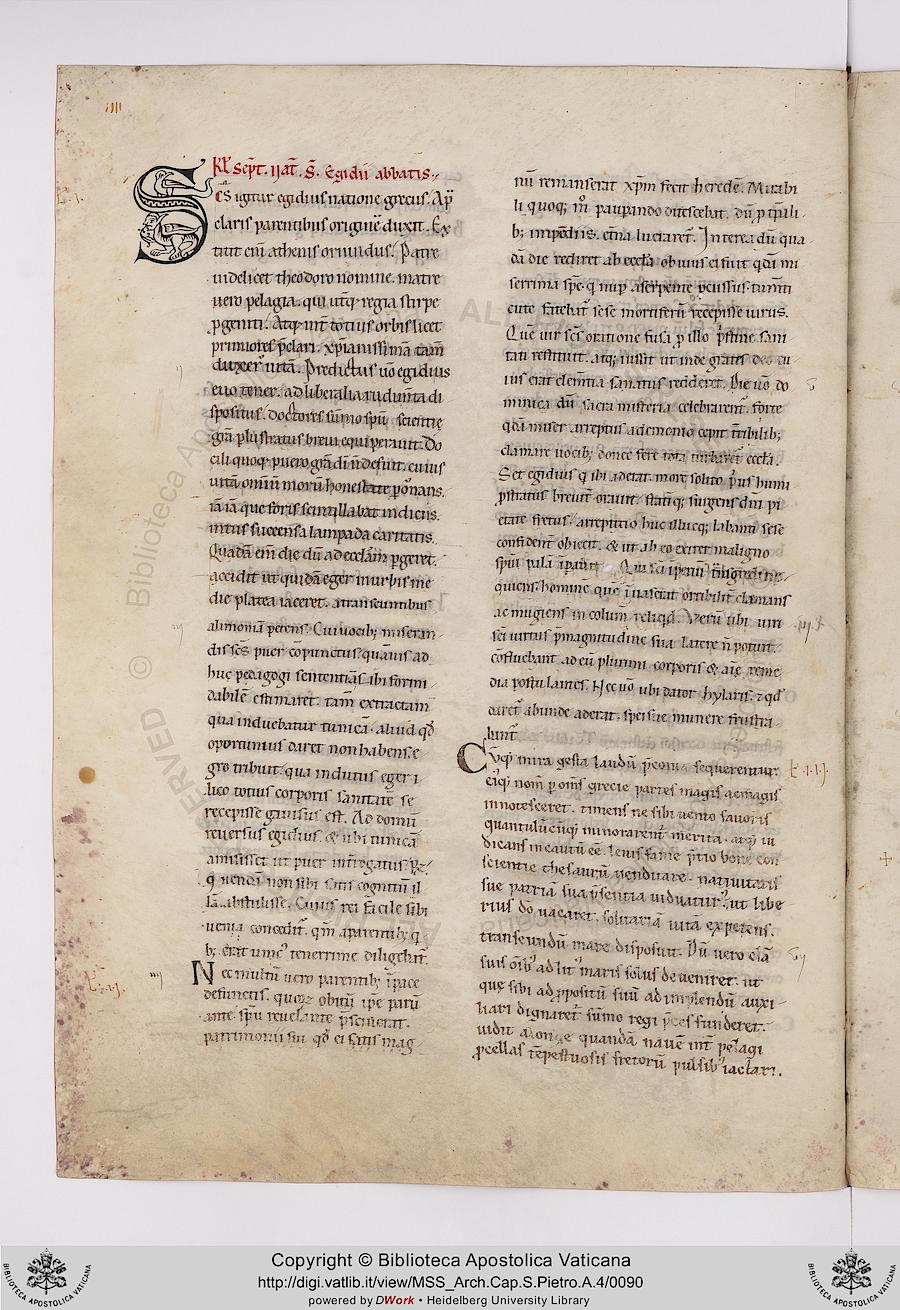 IIII
kl̄ Sep̄t. ŋat̄. S̄. Egidii abbatis.
Scs̄ igitur egidius natione grecus. Ap̄
claris parentibus originē duxit. Ex
titit eni̅ athenis oriundus. Patre
videlicet theodoro nomine. matre
uero pelagia. qui utq; regia stirpe
ꝓgeniti. Atq; int̄ totius orbis licet
primores p̄clari. xp̄ianissimā tam̄
duxer̄ uitā. Predictus ũo egidius
euo tener. ad liberalia rudim̄ta di
spositus. doctores sūmo sp̄u scientię
grā plustratus brevi equiperauit. Do
cili quoq; puero grā di n̄ defuit. cuius
uitā omniū morū honestate p̄onans.
iā iā que foris scintillabat indiciis.
intus succensa lampada caritatis.
Quadā eni̅ die dū ad eccl̄am ꝑgeret.
accidit ut quidā eger in urbis me
die platea iaceret. a transeuntibus
alimoniā petens. Cui uocib; miseran
dis scs̄ puer cōpunctus. quāuis ad
huc pedagogi sententias sibi formi
dabilē estimaret. tam̄ extractam
qua induebatur tunicā. aliud qd̄
oportunius daret non habens. e
gro tribuit. qua indutus eger i
lico totius corporis sanitatē se
recepisse gauisus est. Ad domū
reuersus egidius. & ubi tunicā
amisisset ut puer int̄rogatus
q̄ uendi non sibi satis cognitū il
lā abstulisse. Cuius rei facile sibi
uenia concedit̄. qm̄ aparentib; q̄
b; erat unic' tenerrime diligebat̄.
Nec multū uero parentib; ī pace
defunctis. quoꝝ obitū ip̄e parū
ante sp̄u reuelante p̄sciuerat.
patrimonii sui qd̄ ei satis mag
nū remanserat xp̄m fecit heredē. Mirabi
li quoq; m̊ paupando ditescebat. dū p tp̄ali
b; impendiis. etn̄a lucraret̄. Interea dū qua
dā die rediret ab eccl̄a obuius ei fuit qdā mi
serrima spe. q̄ nup a serpente pcussus. tum̄ti
cute fatebat̄ sese mortiferū recepisse uirus.
Quē uir scs̄ oratione fusā p illo p̄stine sani
tati restituit. atq; iussit ut inde gratis deo cu
ius erat clem̄tia sanatus redderet. Die ũo do
minica dū sacra misteria celebrarent̄. forte
qdā miser arreptus a demonio cepit t̄ribilib;
clamare uocib; donec fere tota turbaret̄ eccl̄a.
Set egidius q̄ ibi aderat. more solito p̄us humi
ꝓstratus breuit̄ orauit. statiq; surgens dn̄i pi
etate fretus. arreptitio huc illucq; labanti sese
confident̄ obiecit. & ut ab eo exiret maligno
sp̄ui palā īpauit.
quiens hominē quē īuaserat orribilit̄ clamans
ac mugiens incolum̄ reliqd̄. Verū ubi uiri
sc̄i uirtus p̄magnitudine sua latere n̄ potuit.
cōfluebant ad eū plurimi corporis & aīę reme
dia postulantes. Hec ũo ubi dator hylaris. & qd
daret̄ abunde aderat. spei sue munere frustra
bunt̄.
Cūq; mira gesta laudū p̄conia sequerentur.
eiq; nom̄ p om̄s grecie partes magis ac magis
innotesceret. timens ne sibi uento fauoris
quantulūcūq; minorarent̄ merita. atq; iu
dicans incautū eē. leuis fame p̄tio bone con
scientie thesaurū uenditare. natiuitatis
sue patriā sua p̄sentia uiduatur'. ut libe
rius dō uacaret. solitariā uitā expetens.
transeundū mare disposuit. Dū uero clā
suis oīb' ad lit' maris solus deueniret. ut
quę sibi ad ꝓpositū suū ad implendū auxi
liari dignaret̄ sūmo regi p̄ces funderet.
uidit a longe quandā nauē int̄ pelagi
ꝓcellas tēpestuosis fretorū pulsib' iactari.
Copyright © Biblioteca Apostolica Vaticana
http://digi.vatlib.it/view/MSS_Arch.Cap.S.Pietro.A.4/0090
powered by DWork • Heidelberg University Library
BIBLIOTECA APOSTOLICA VATICANA
BIBLIOTECA APOSTOLICA VATICANA